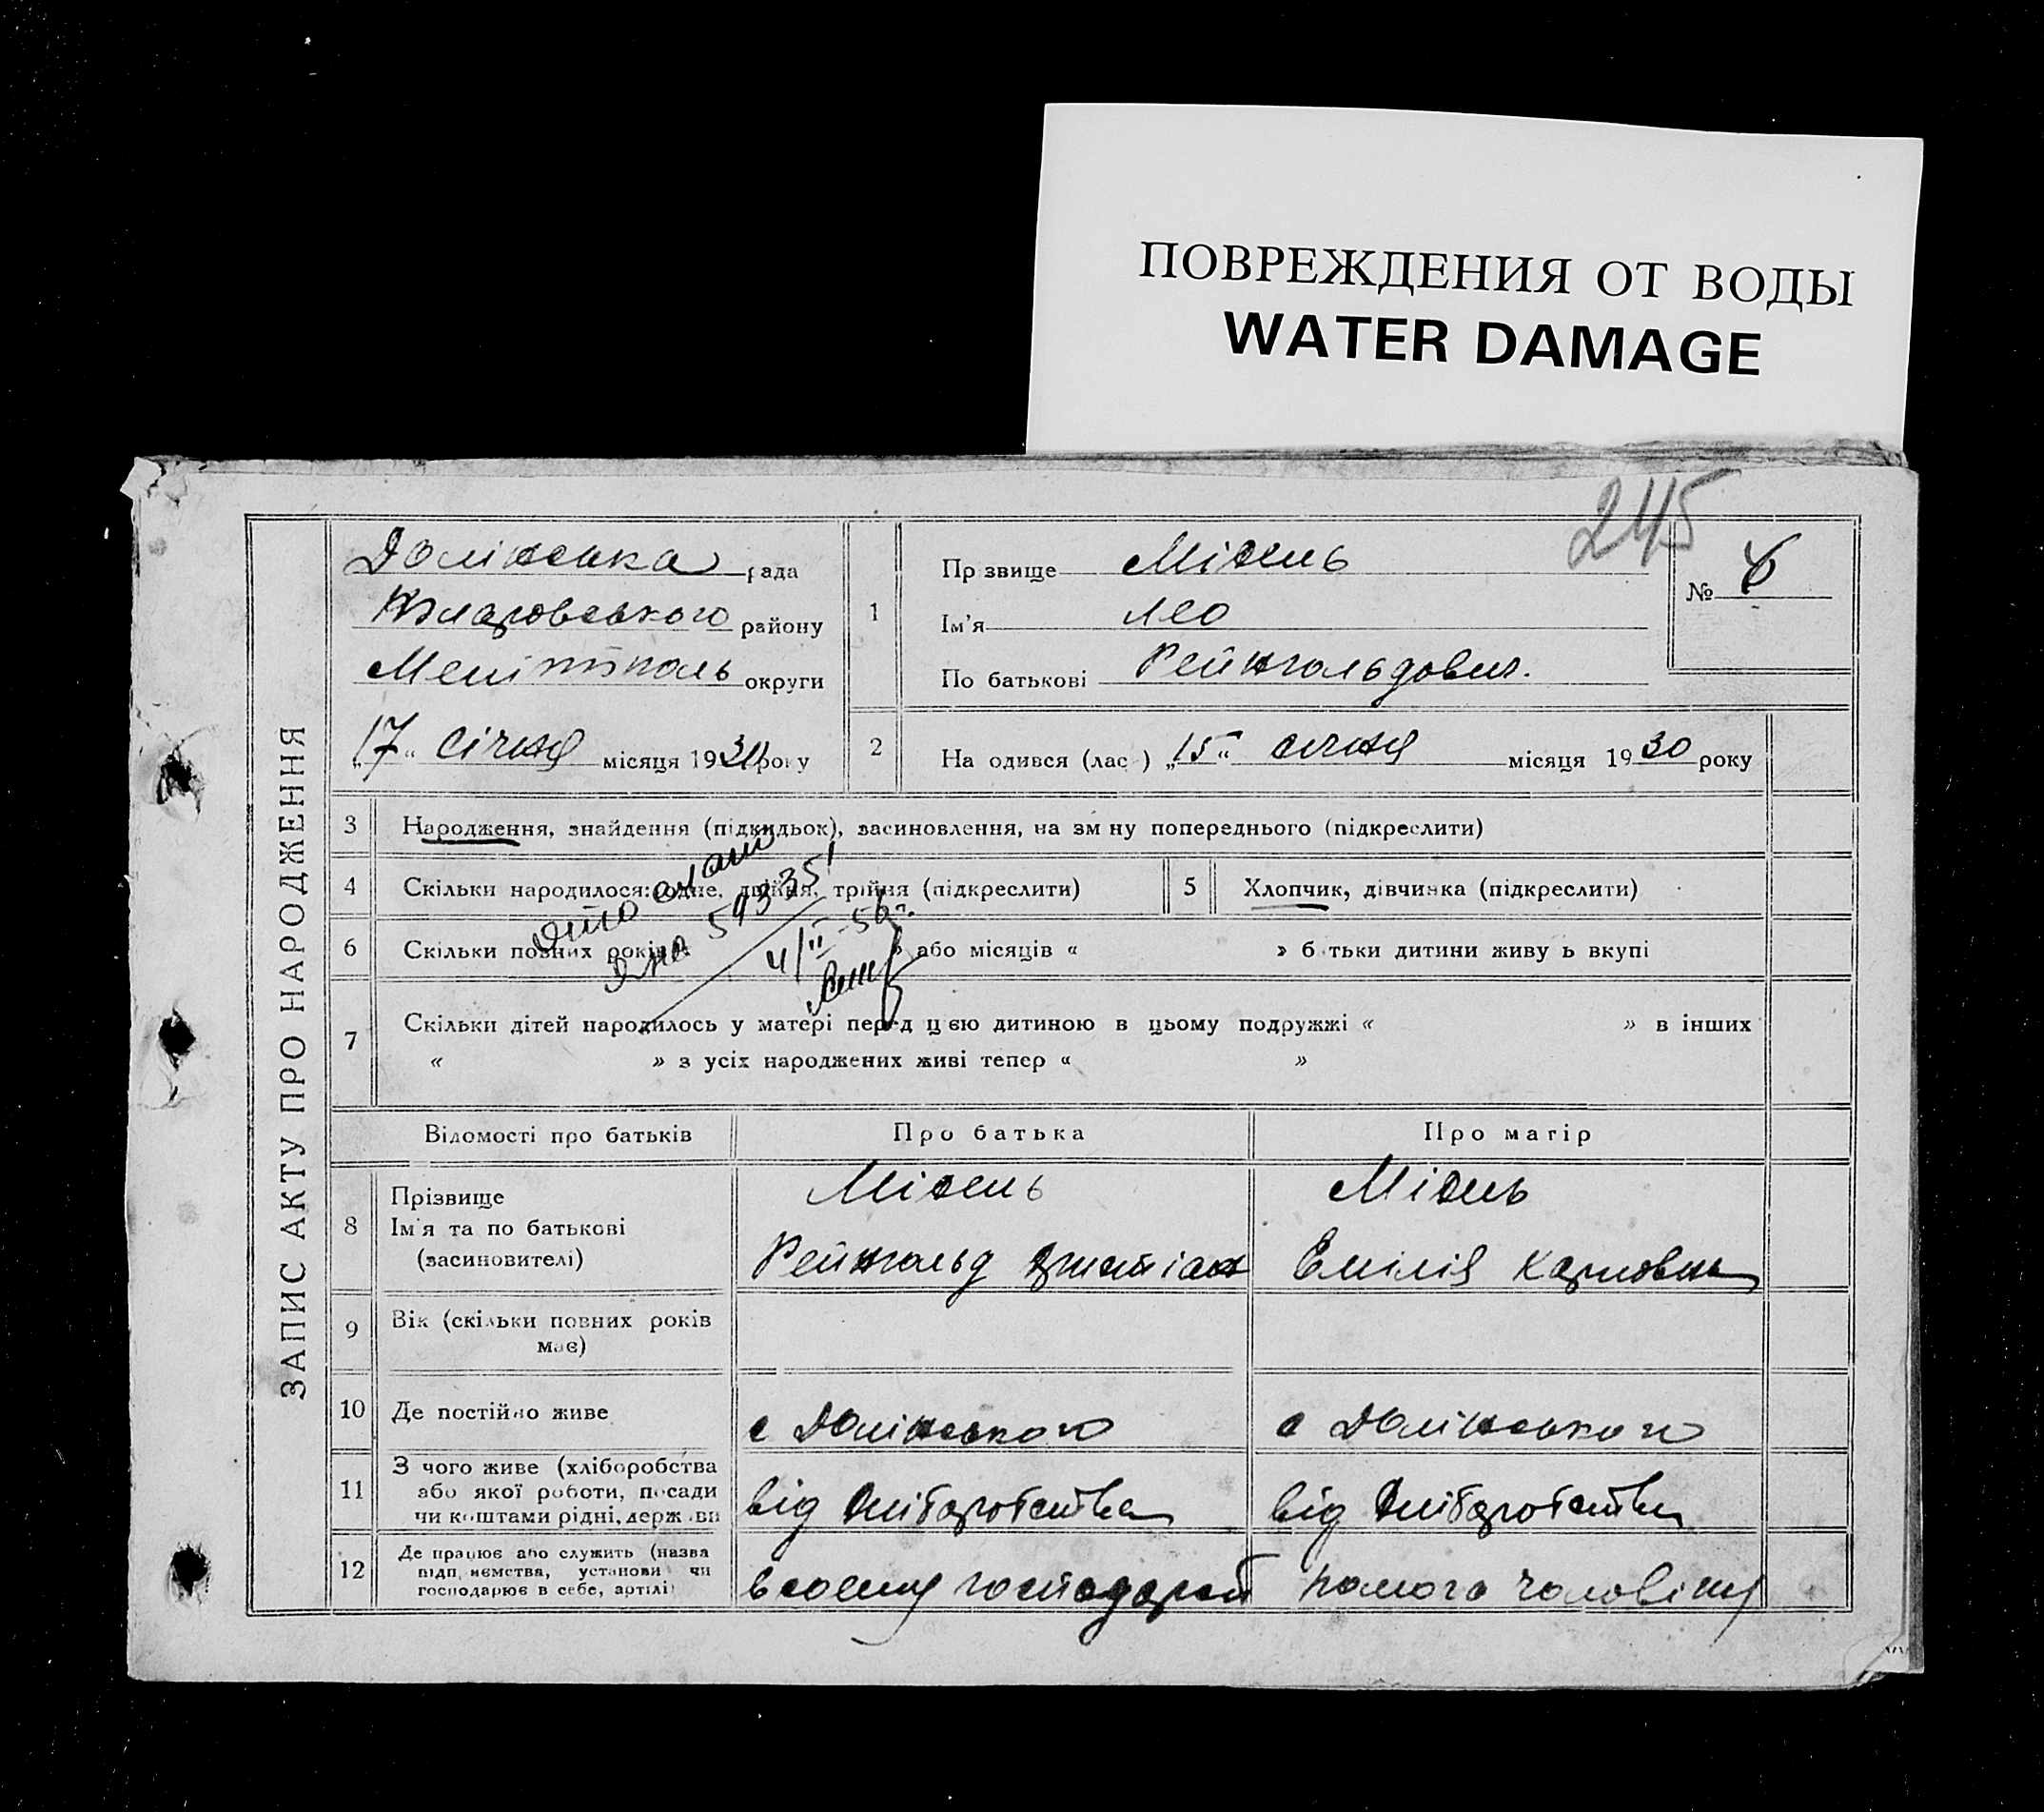 ПОВРЕЖДЕНИЯ ОТ ВОДЫ
WATER DAMAGE
245
ЗАПИС АКТУ ПРО НАРОДЖЕННЯ
Долінська рада
району
Мелітполь округи
„17“ січня місяця 1930 року
1
Пр звище
Ім'я Лео
По батькові Рейнгольдович.
№ 6
2
На одився (лас ) „15“ січня місяця 1930 року
3 Народження, знайдення (підкидьок), засиновлення, на зм ну попереднього (підкреслити)
4 Скільки народилося: одне, двійня, трійня (підкреслити)
5 Хлопчик, дівчинка (підкреслити)
6 Скільки повних років або місяців « » б тьки дитини живу ь вкупі
593351
4/II-56 г.
7 Скільки дітей народилось у матері перед цєю дитиною в цьому подружжі « » в інших
« » з усіх народжених живі тепер « »
Відомості про батьків
Про батька
Про матір
8 Прізвище
Ім'я та по батькові
(засиновителі)
Рейнгольд
Емілія Карловна
9 Вік (скільки повних років
має)
10 Де постійно живе
с Долінського
с Долінського
11 З чого живе (хліборобства
або якої роботи, посади
чи коштами рідні, держ ви
від хліборобства
від хліборобства
12 Де працює або служить (назва
підп иємства, установи чи
господарює в себе, артілі)
в своему господарст
помога чоловіку